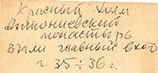 Красный Холм
Антониевский
монастырь
взяли главный вход
г 35 ÷ 36 г.